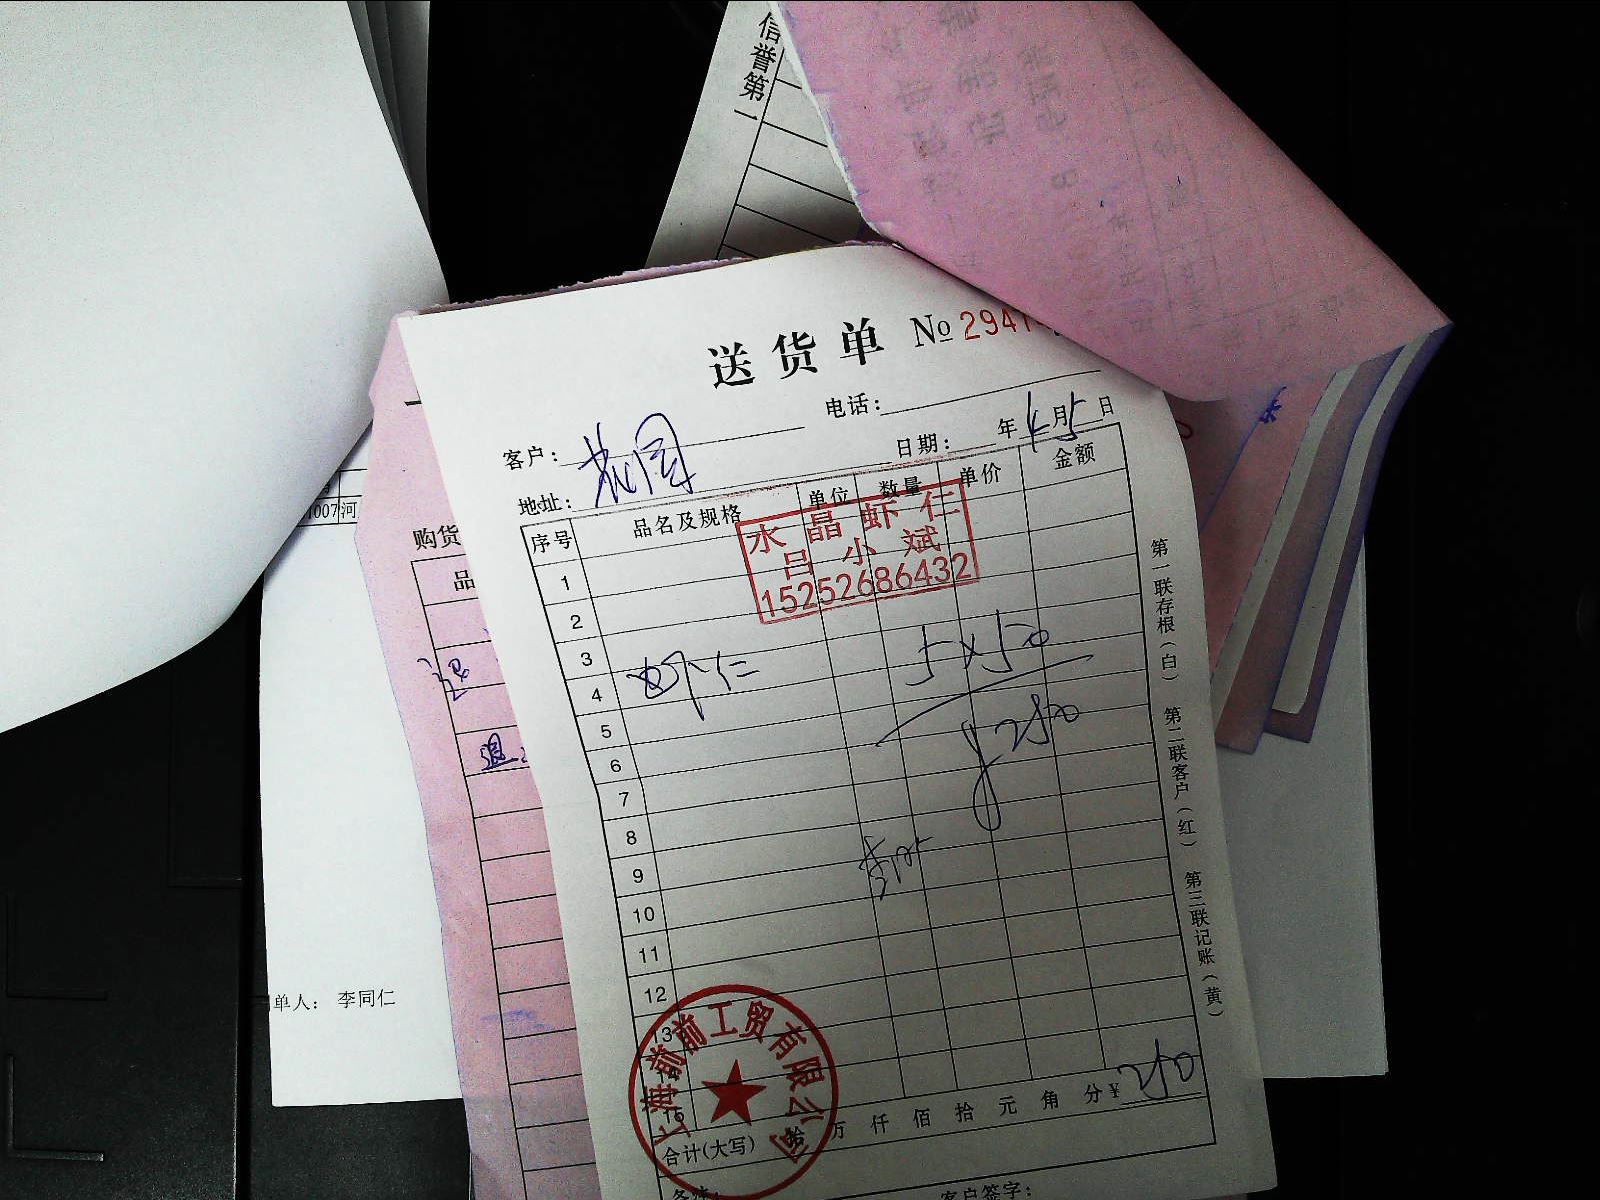 信誉第一
送货单 № 2941
电话:
客户:
日期: 年 4月5日
地址:
序号 品名及规格 单位 数量 单价 金额
水晶虾仁
吕小斌
15252686432
1
2
3
4 虾仁 5×50
5
6 ¥250
7
8
9
10
11
12
13
14
15
合计(大写) 拾 万 仟 佰 拾 元 角 分 ¥ 250
备注: 客户签字:
上海前前工贸有限公司
第一联存根(白) 第二联客户(红) 第三联记账(黄)
购货
品
退
1007 河
单人: 李同仁